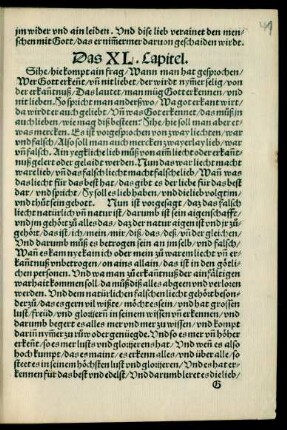 jm wider vnd ain leiden. Vnd dise lieb verainet den men/
schen mit Gott/ das er nim̃ermer daruon geschaiden wirdt.
Das XL. Capitel.
Sihe/ hie kompt ain frag/ Wann man hat gesprochen/
Wer Gott erkeñt/ vñ nit liebet/ der wirdt nym̃er selig/ von
der erkañtnuß/ Das lautet/ man müg Gott erkennen/ vnd
nit lieben. So spricht man anderßwo/ Wa got erkant wirt/
da wirdt er auch geliebt/ Vñ was Got erkennet/ das můß in
auch lieben/ wie mag diß besteen? Sihe/ hie soll man aber et/
was mercken. Es ist vorgesprochen von zway liechten/ war
vnd falsch/ Also soll man auch mercken zwayerlay lieb/ war
vñ falsch/ Ain yegkliche lieb můß von aim liecht oder erkañt/
nuß gelert oder gelaidt werden. Nun das war liecht macht
ware lieb/ vñ das falsch liecht macht falsche lieb/ Wañ was
das liecht für das best hat/ das gibt es der liebe für das best
dar/ vnd spricht/ Sy soll es lieb haben/ vnd die lieb volgt im/
vnd thůt sein gebott. Nun ist vorgesagt/ das das falsch
liecht natürlich vñ natur ist/ darumb ist sein aigenschafft/
vnd jm gehört zů alles das/ das der natur aigen ist vnd zů/
gehört/ das ist/ ich/ mein/ mir/ diß/ das/ deß/ vñ der gleichen/
Vnd darumb můß es betrogen sein an jm selb/ vnd falsch/
Wañ es kam nye kain ich oder mein zů warem liecht vñ er/
kañtnuß vnbetrogen/ on ains allain/ das ist in den götli/
chen personen. Vnd wa man zů erkañtnuß der ainfältigen
warhait kommen soll/ da můß diß alles abgeen vnd verloren
werden. Vnd dem natürlichen falschen liecht gehört beson/
der zů/ das es gern vil wißte/ möcht es sein/ vnd hat grossen
lust/ freüd/ vnd gloriern in seinem wissen vñ erkennen/ vnd
darumb begert es alles mer vnd mer zů wissen/ vnd kompt
dariñ nym̃er zů růw oder geniegde. Vnd so es mer vñ höher
erkeñt/ so es mer lusts vnd gloriierens hat/ Vnd weñ es also
hoch kumpt/ das es maint/ es erkenn alles/ vnd über alle/ so
steet es in seinem höchsten lust vnd gloriiern/ Vnd es hat er/
kennen für das best vnd edelst/ Vnd darumb leret es die lieb/
G